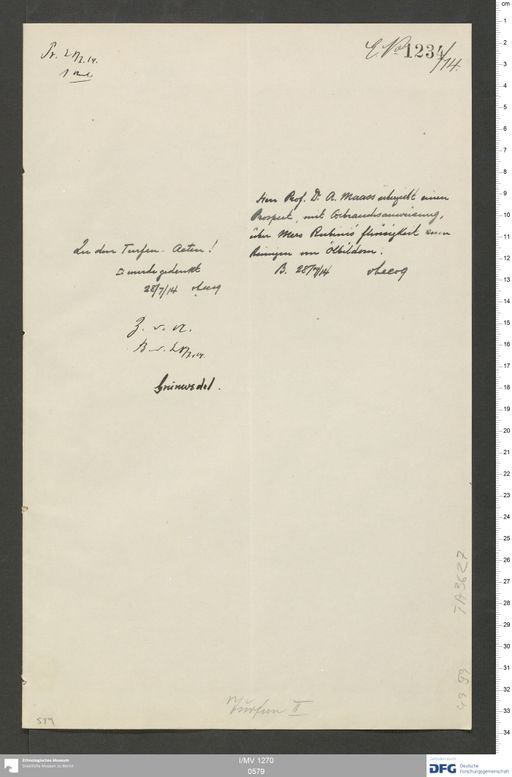 Pr. 28/7.14.
E. No 1234/14.
Herr Prof. Dr. A. Maass übergibt einen
Prospect, mit Gebrauchsanweisung,
über Mers Rubinis' flüssigkeit zum
Reinigen von Ölbildern.
B. 28/7/14 vLecoq
Zu den Turfan-Acten!
wurde gedankt
28/7/14 vLecoq
Z. d. A.
28/7.14.
Grünwedel.
Turfan II
7A3627
4399
579
Ethnologisches Museum
Staatliche Museen zu Berlin
I/MV 1270
0579
DFG Deutsche
Forschungsgemeinschaft
cm
1
2
3
4
5
6
7
8
9
10
11
12
13
14
15
16
17
18
19
20
21
22
23
24
25
26
27
28
29
30
31
32
33
34